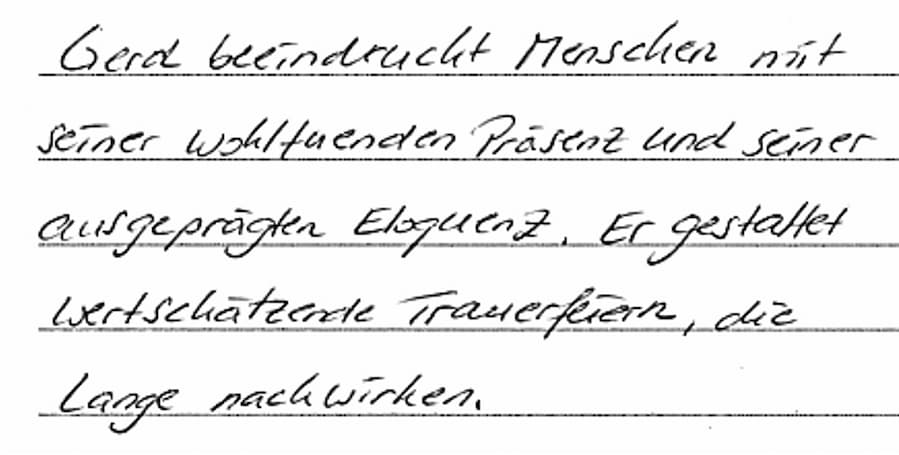 Gerd beeindruckt Menschen mit
seiner wohltuenden Präsenz und seiner
ausgeprägten Eloquenz. Er gestaltet
wertschätzende Trauerfeiern, die
Lange nachwirken.